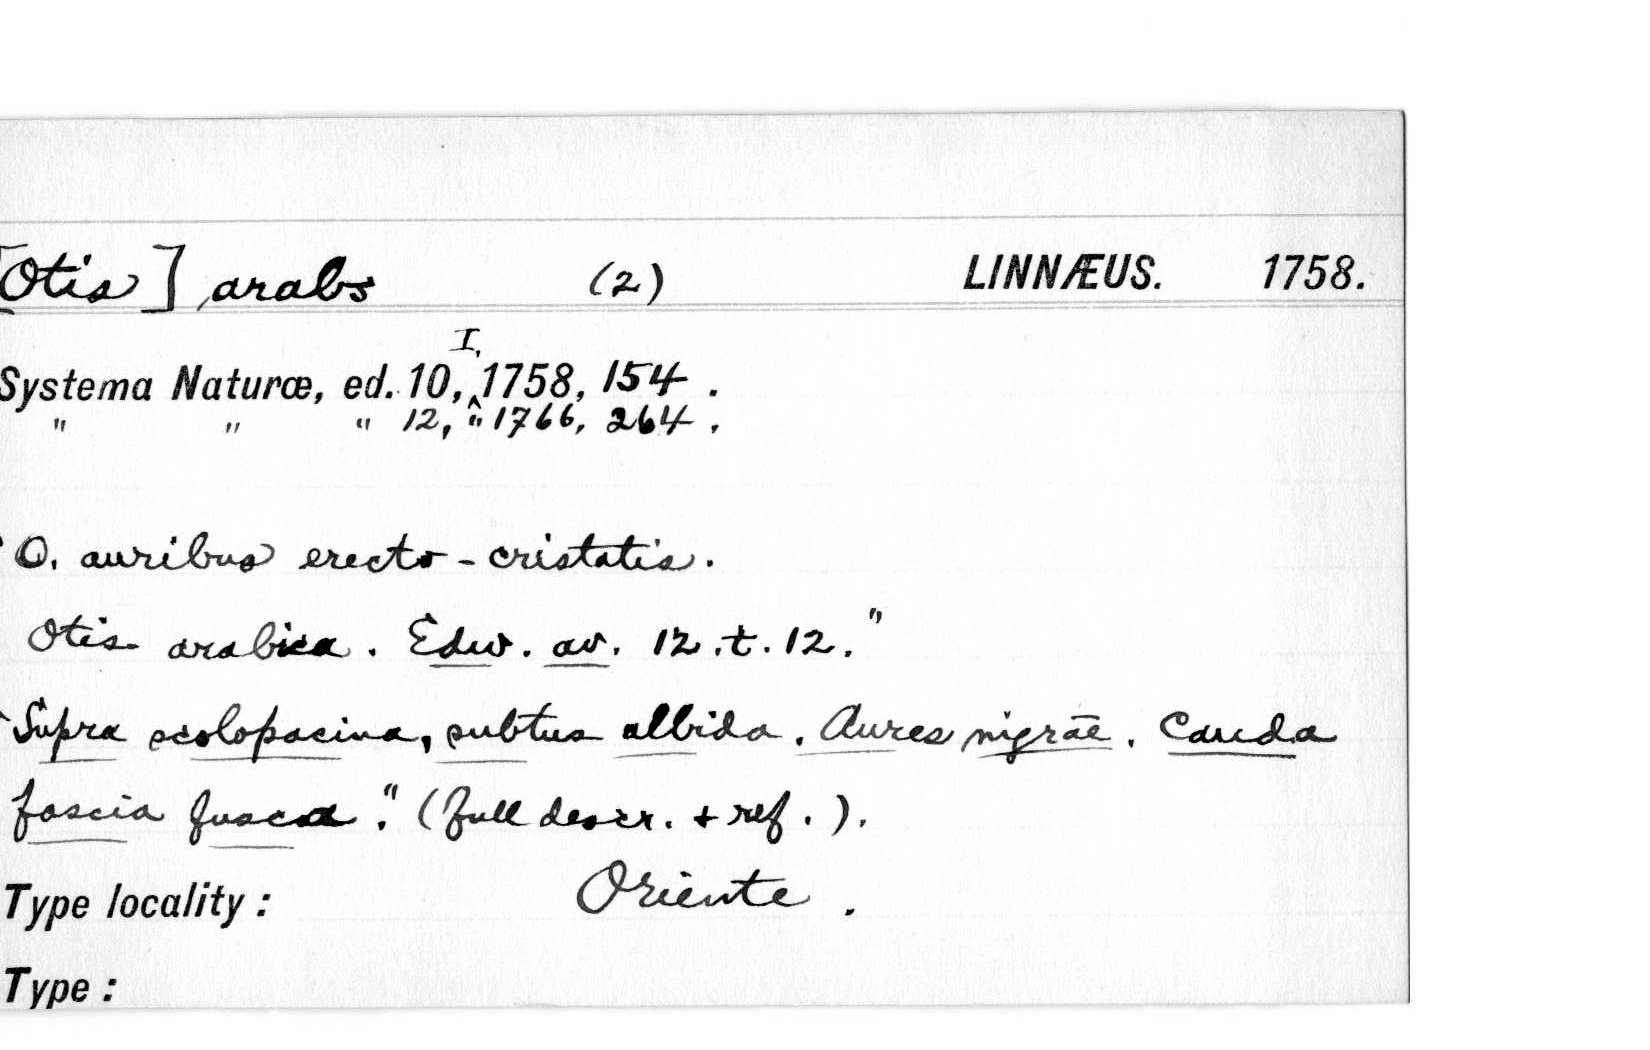 [Otis] arabs (2) LINNÆUS. 1758.
I,
Systema Naturæ, ed. 10, ^ 1758, 154 .
" " " 12, " 1766, 264 .
"O. auribus erecto-cristatis.
Otis arabica. Edw. av. 12. t. 12."
"Supra scolopacina, subtus albida. Aures nigræ. Cauda
fascia fusca." (full descr. + ref.).
Type locality : Oriente .
Type :